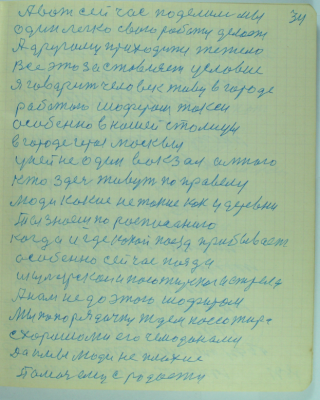 34
А вот сейчас поделили мы
один легко свою работу делает
А другому приходится тяжело
Все это заставляет условие
Я говорит человек живу в городе
работаю шофером такси
особенно в нашей столицы
в городе герое москвы
у ней не один вокзал а много
кто здеч живут по правелу
люди какие не тание как и деревни
Ты знаеш по росписанию
когда и где какой поезд прибывает
особенно сейчас поезда
А нам не до этого шоферам
Мы по порядочку ждем пассажира
с хорошими его чемоданами
Да и мы люди не плахие
Памочему с радости